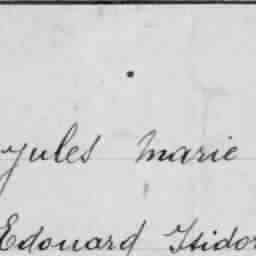 Jules Marie
Edouard Isidor